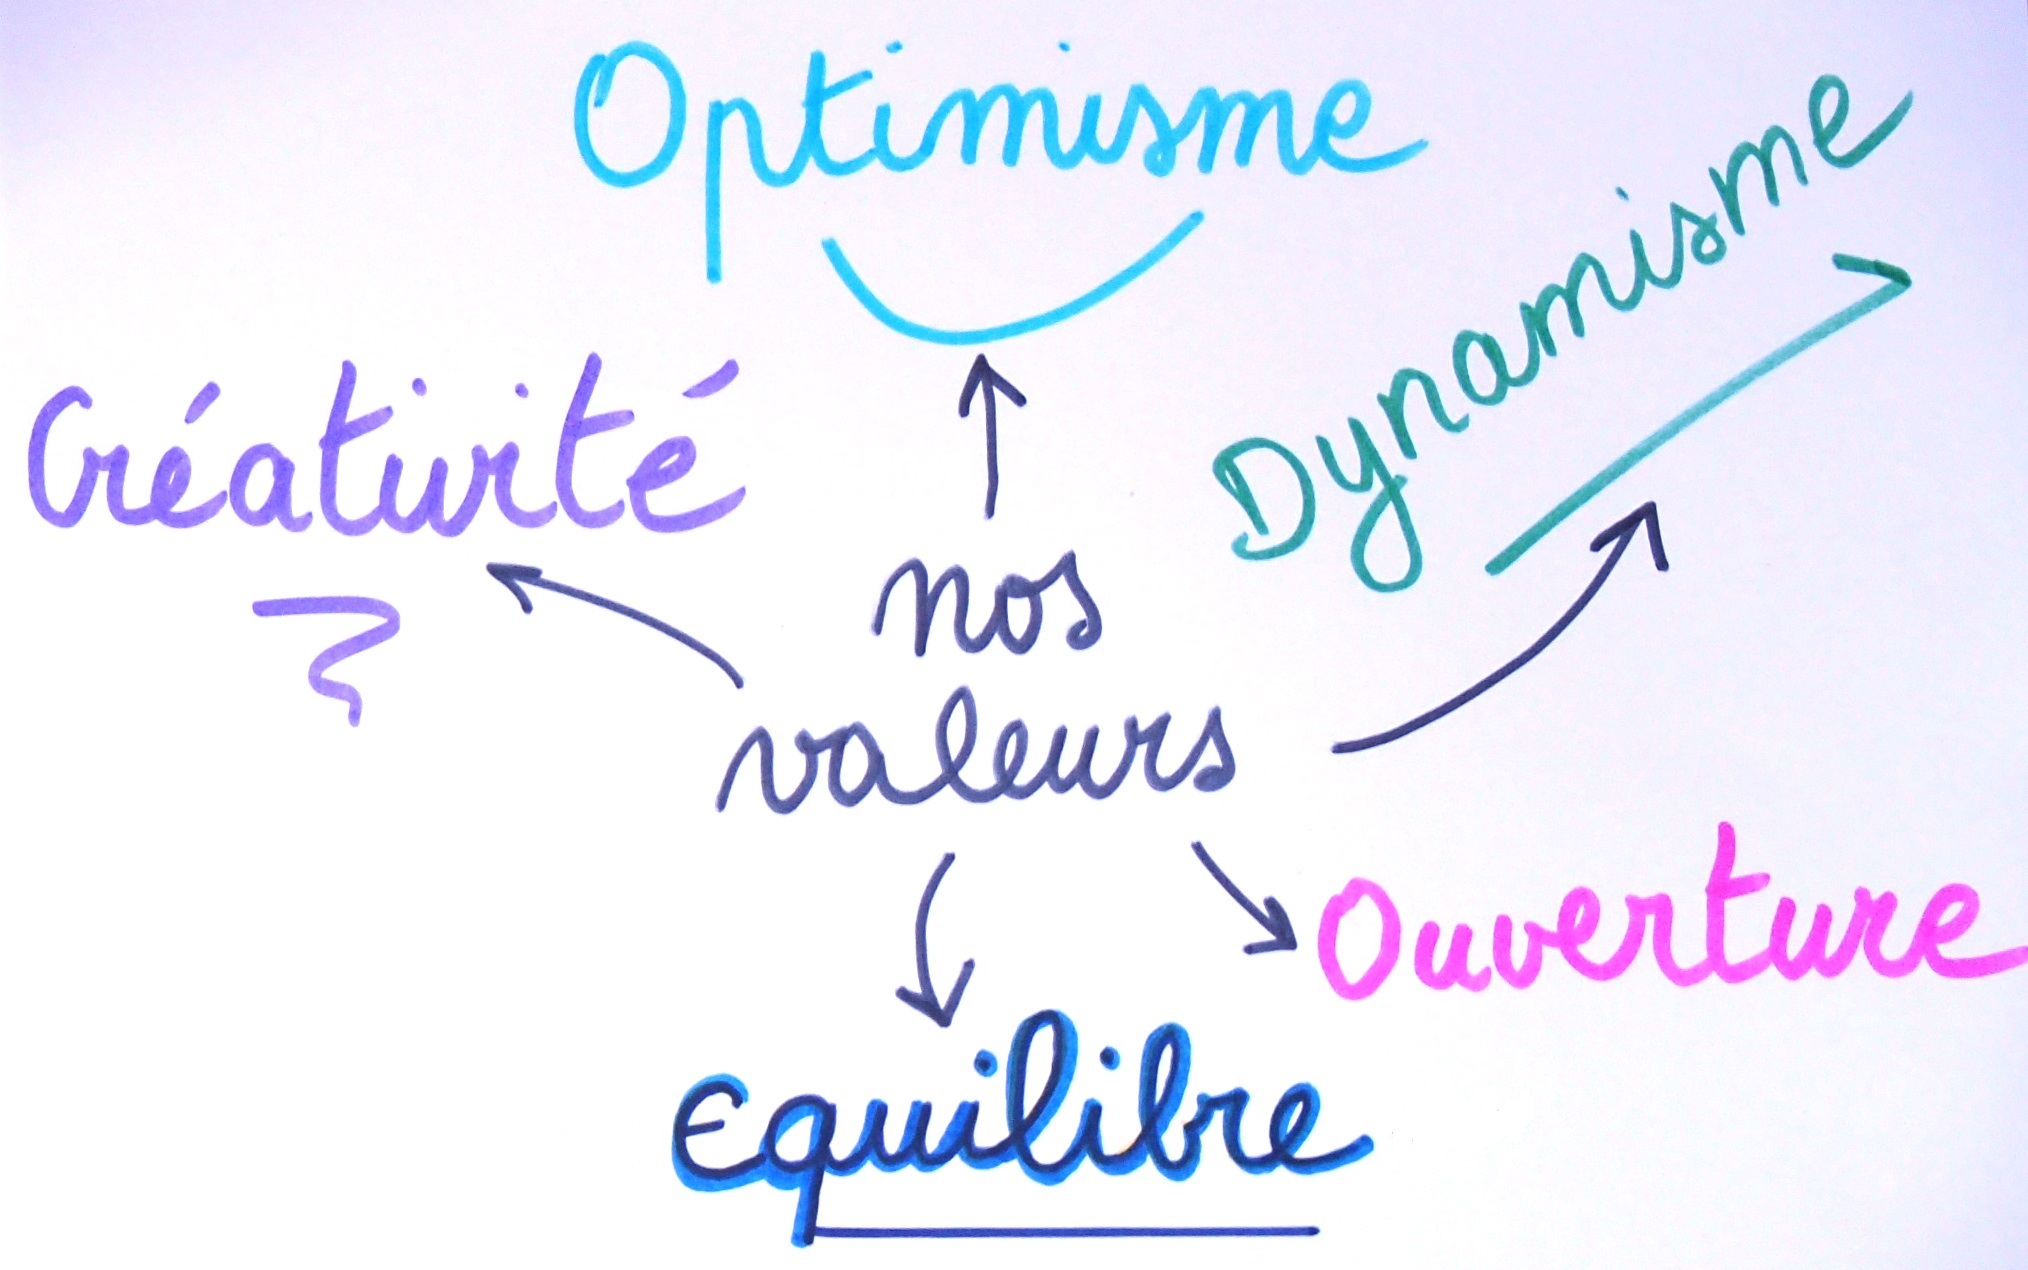 Optimisme
Dynamisme
Créativité
nos
valeurs
Ouverture
Equilibre